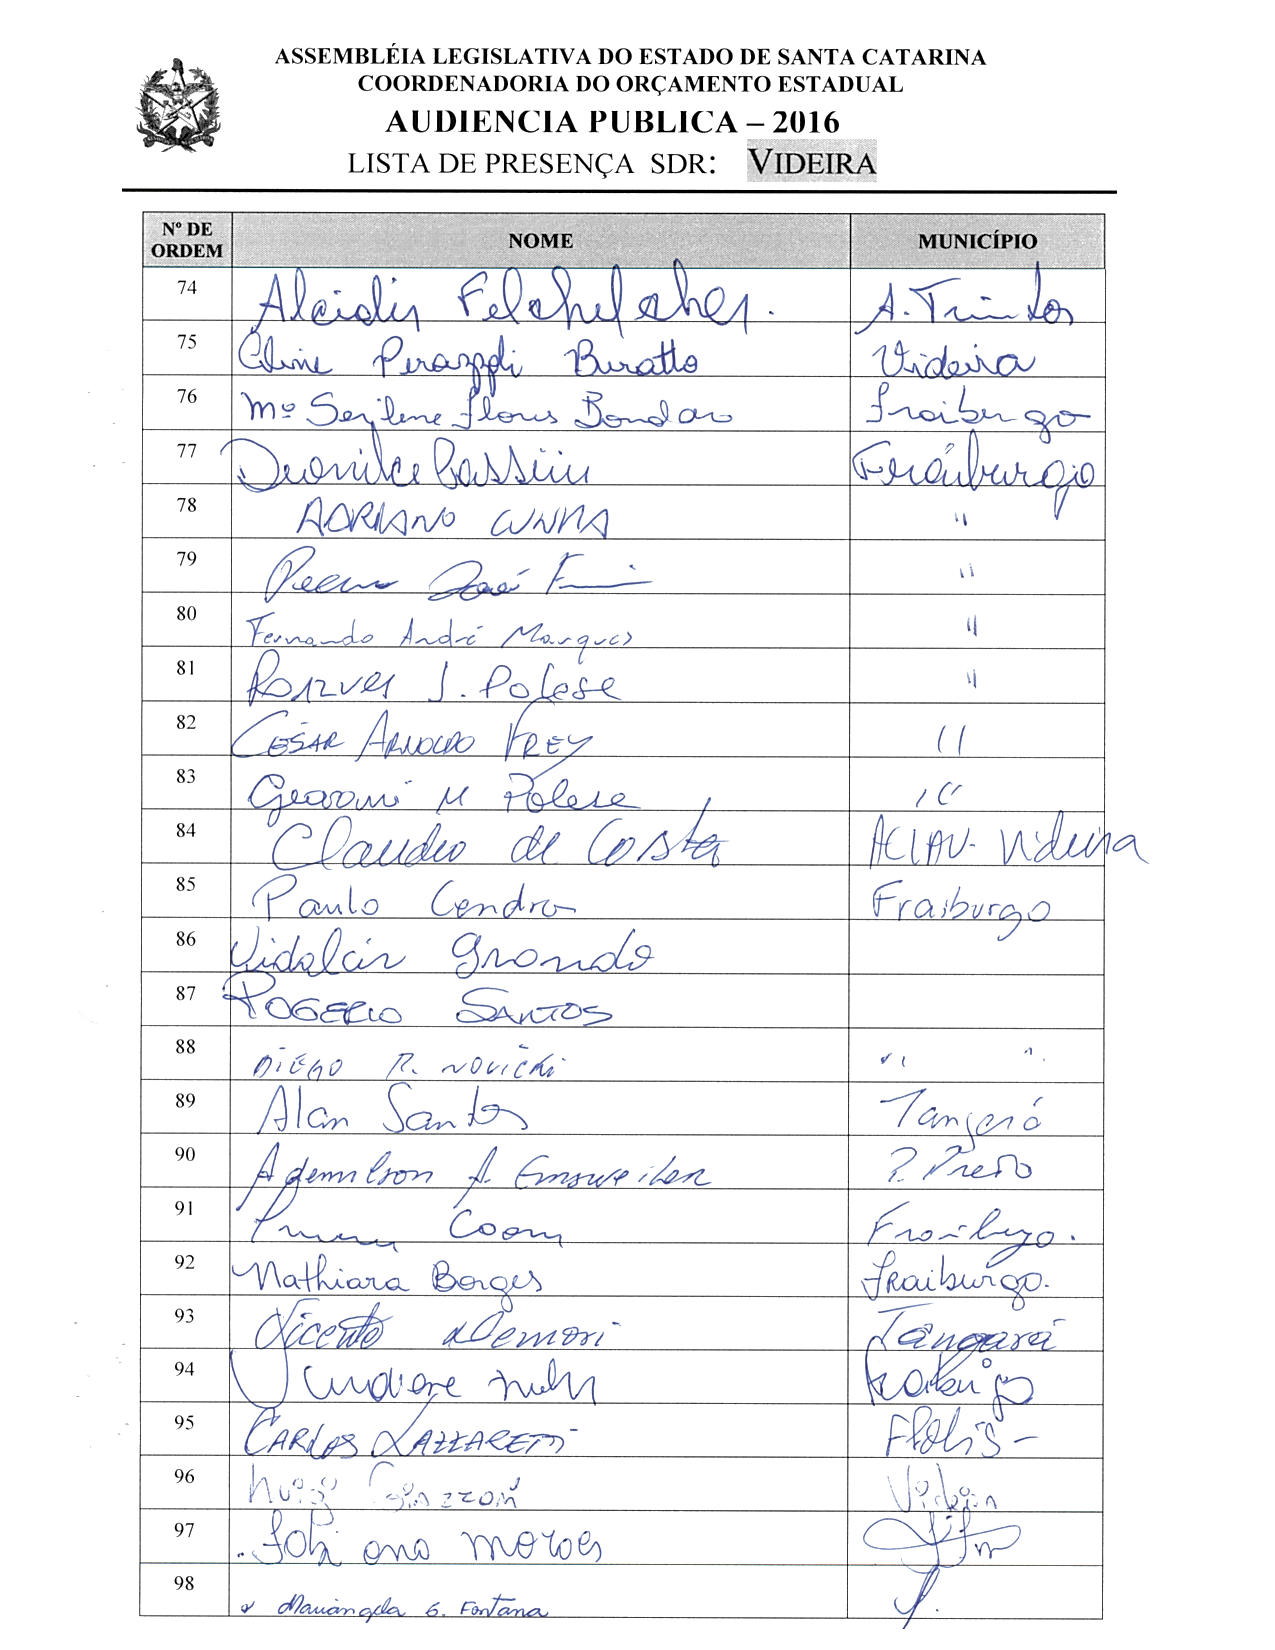 ASSEMBLÉIA LEGISLATIVA DO ESTADO DE SANTA CATARINA
COORDENADORIA DO ORÇAMENTO ESTADUAL
AUDIENCIA PUBLICA – 2016
LISTA DE PRESENÇA SDR: VIDEIRA
Nº DE ORDEM NOME MUNICÍPIO
74 Alcidir A. Trinta
75 Eline Perazzoli Buratto Videira
76 Mª Serilene Flores Bondan Fraiburgo
77 Deonilce Bassini Fraiburgo
78 ADRIANO CUNHA "
79 José "
80 Fernando André Marques "
81 J. Polese "
82 CÉSAR ARNOLDO FREY "
83 Geovani M Polese "
84 Claudio de Costa ACIAV- Videira
85 Paulo Cendro Fraiburgo
86 Vidalcir Grando
87 ROGERIO SANTOS
88 DIEGO R. NOVICKI " "
89 Alan Santos Tangará
90 Ademilson A. Emsweiler P. Preto
91 Fraiburgo.
92 Nathiara Borges Fraiburgo.
93 Vicente Demori Tangará
94 Fraiburgo
95 CARLOS LAZZARETTI Fpolis -
96 Videira
97 Fabiano Moraes
98 Mariangela G. Fontana